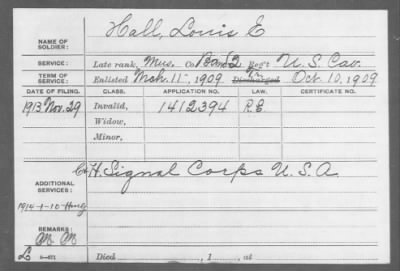 NAME OF SOLDIER: Hall, Louis E
SERVICE: Late rank, Mus. Co. Band 2, Reg't U.S. Cav.
TERM OF SERVICE: Enlisted Mch. 11, 1909 Discharged Tr. Oct. 10, 1909
DATE OF FILING. CLASS. APPLICATION NO. LAW. CERTIFICATE NO.
1913 Nov. 29 Invalid, 1412394 R.E
Widow,
Minor,
ADDITIONAL SERVICES: H. Signal Corps U.S.A.
1914-1-10-
REMARKS:
M. M
L Died , 1 , at